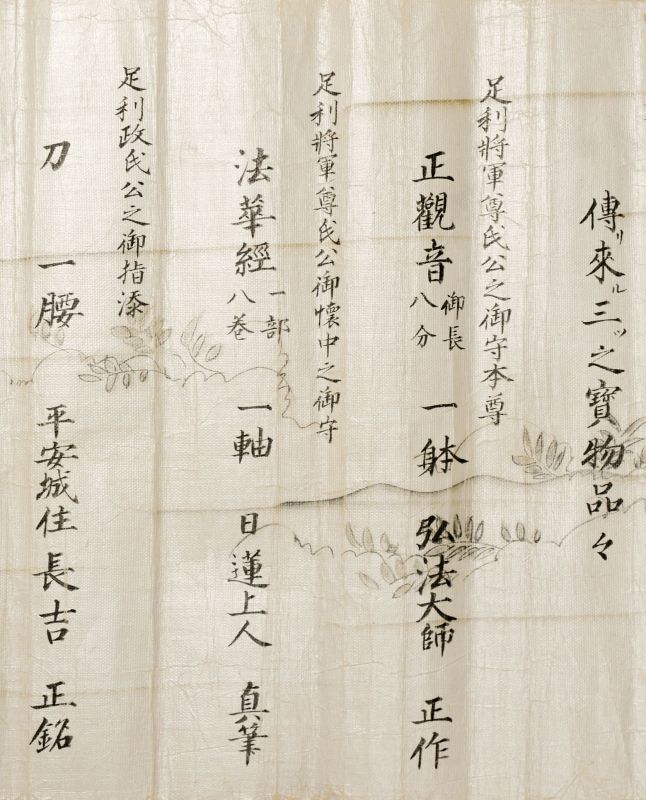 傳リ來ル三ツ之寶物品々
足利將軍尊氏公之御守本尊
正觀音 御長八分 一躰 弘法大師 正作
足利將軍尊氏公御懷中之御守
法華經 一部八巻 一軸 日蓮上人 真筆
足利政氏公之御指添
刀 一腰 平安城住長吉 正銘